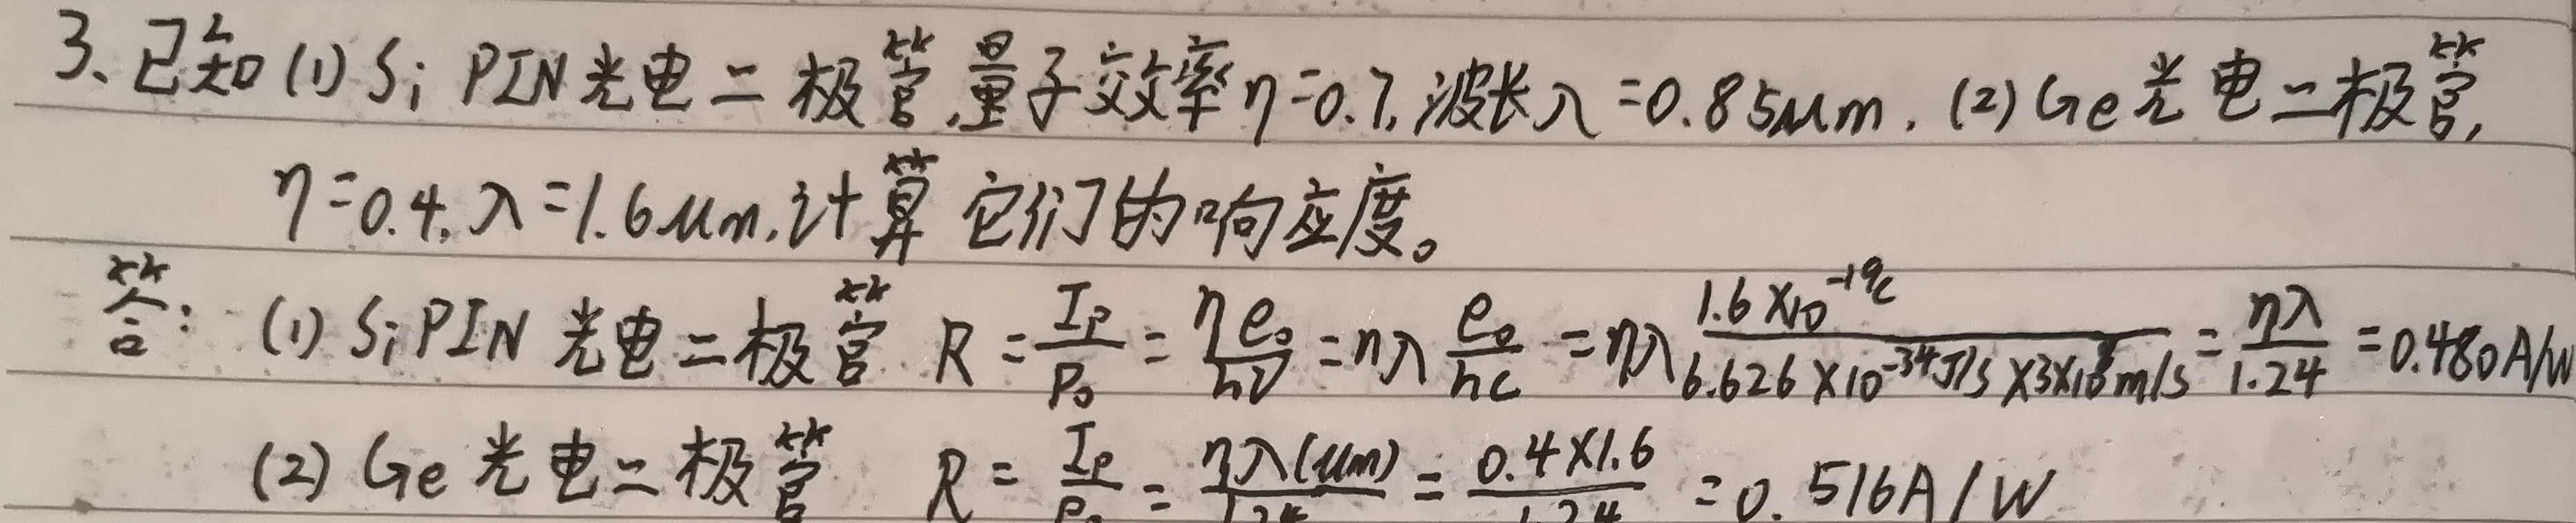 3、已知(1)Si PIN光电二极管,量子效率η=0.7,波长λ=0.85μm.(2)Ge光电二极管,
η=0.4,λ=1.6μm,计算它们的响应度。
答: (1) Si PIN 光电二极管 R = I_P/P_0 = ηe_0/hν = ηλ e_0/hc = ηλ 1.6×10^-19C/6.626×10^-34J/s×3×10^8m/s = ηλ/1.24 = 0.480A/W
(2) Ge光电二极管 R = I_P/P_0 = ηλ(μm)/1.24 = 0.4×1.6/1.24 = 0.516A/W